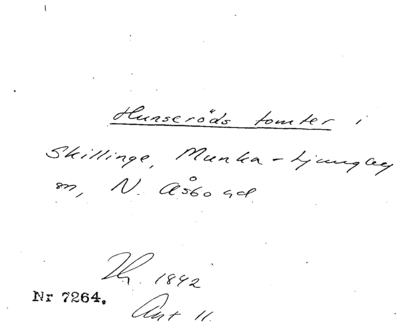 Hunseröds tomter i
Skillinge, Munka-Ljungby
sn, N. Åsbo hd
Th. 1842
Nr 7264.
Ant 11.